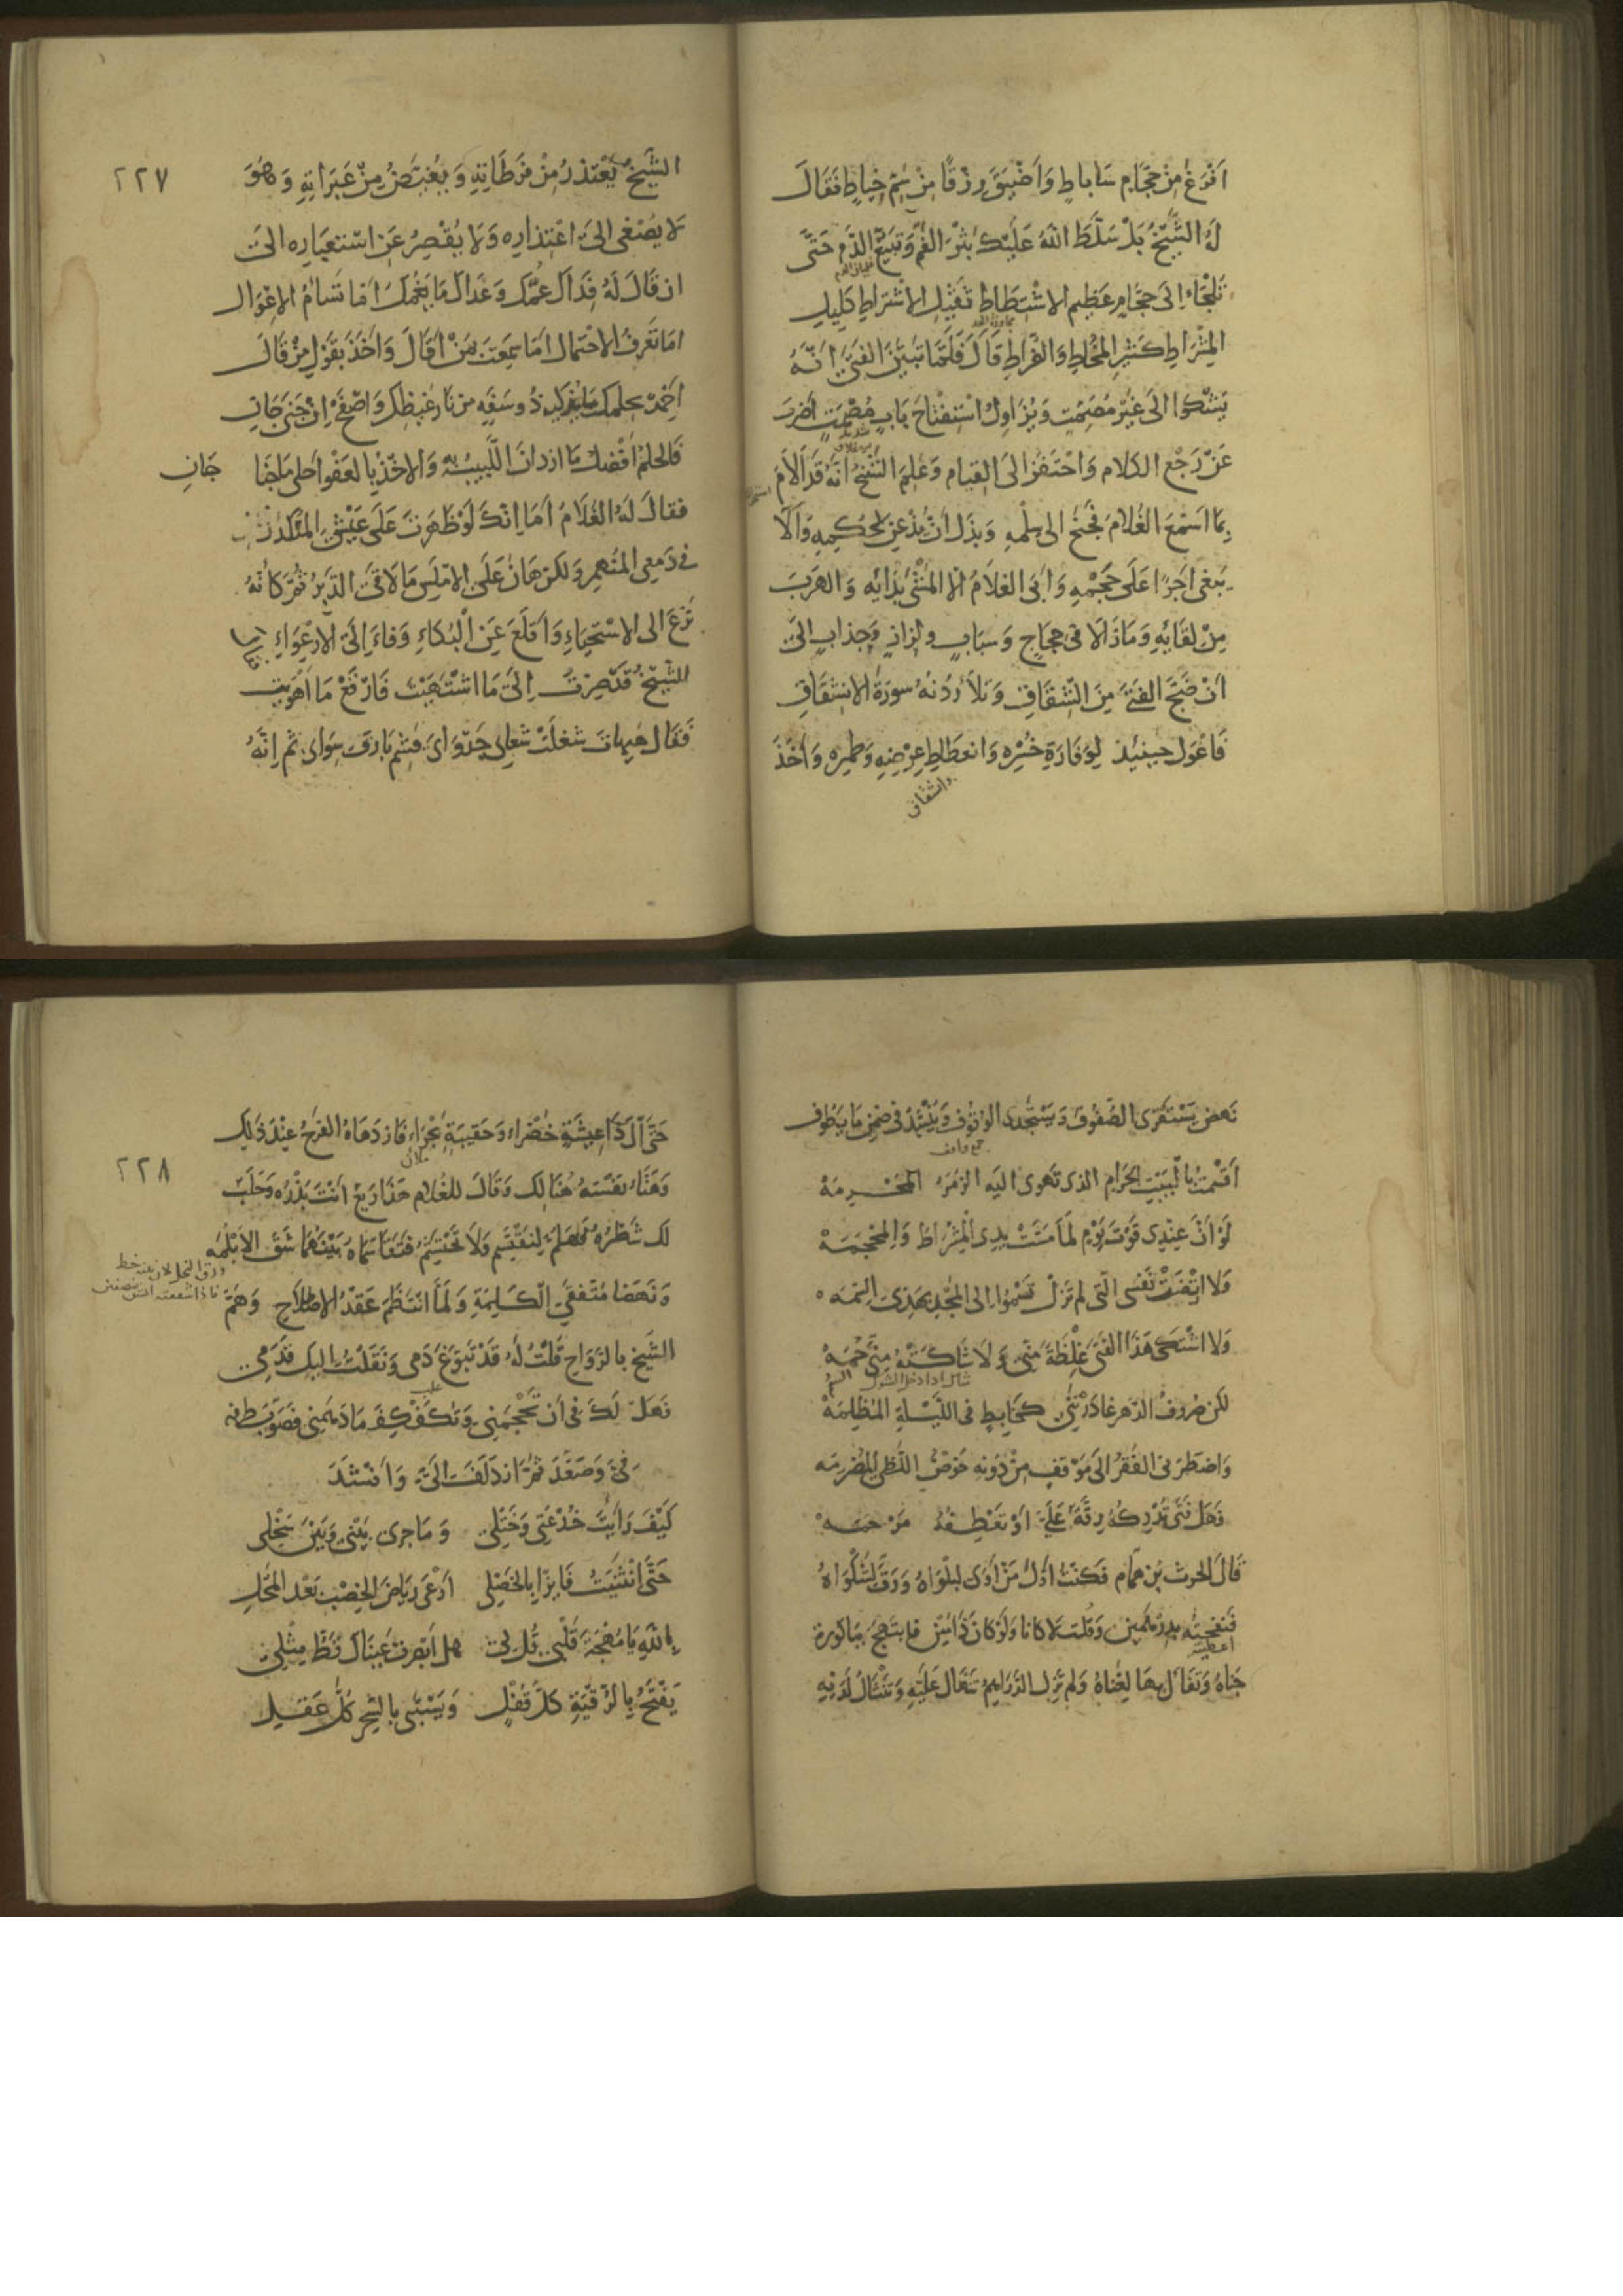 افرغ من حجام ساباط واضيق رزقا من سم خياط فقال
له الشيخ بل سلط الله عليك بثر الفم وتبيغ الدم حتى
تلجاء الى حجام عظيم الاشتطاط ثقيل الاشتراط كليل
المشراط كثير المخاط والضراط قال فلما تبين الفتى انه
يشكوا الى غير مصمت ويزاول استفتاح باب مصمت اضرب
عن رجع الكلام واحتفز الى القيام وعلم الشيخ انه قد الام
بما اسمع الغلام فجنح الى سلمه وبذل ان يذعن لحكمه ولا
يبغى اجرا على حجمه وابى الغلام الا المشى بدائه والهرب
من لقائه وما زالا فى حجاج وسباب ولزاز وجذاب الى
ان ضج الفتى من الشقاق وتلا ردنه سورة الانشقاق
فاعول حينئذ لوفارة خسره وانعطاط عرضه وطمره واخذ
وانشقاق
٢٢٧
الشيخ يعتذر من فرطاته ويغيض من عبراته وهو
لا يصغى الى اعتذاره ولا يقصر عن استعباره الى
ان قال له فداك عمك وعداك ما يغمك اما تسام الاعوال
اما تعرف الاحتمال اما سمعت بمن اقال واخذ بقول من قال
اخمد بحلمك ما يذكيه ذو سفه من نار غيظك واصفح ان جنى جان
فالحلم افضل ما ازدان اللبيب به والاخذ بالعفو احلى ما جنا جان
فقال له الغلام اما انك لو ظهرت على عيشى المنكدر
فى دمعى المنهمر ولكن هان على الاملس ما لاقى الدبر ثم كانه
نزع الى الاستحياء واقلع عن البكاء وفاء الى الارعواء
للشيخ قد صرت الى ما اشتهيت فارقع ما اوهيت
فقال هيهات شغلت شعابى جدواى فشم بارق سواى ثم انه
نهض يستقرى الصفوف ويستجدى الوقوف وينشد فى ضمن ما يطوف
جمع واقف
اقسمت بالبيت الحرام الذى تهوى اليه الزمر المحرمه
لو ان عندى قوت يوم لما مست يدى المشراط والمحجمه
ولا ارتضت نفسى التى لم تزل تسموا الى المجد بهذى السمه
ولا اشتكى هذا الفتى غلظة منى ولا شاكته منى حمه
لكن صروف الدهر غادرننى كخابط فى الليلة المظلمه
واضطرنى الفقر الى موقف من دونه خوض اللظى المضرمه
فهل فتى تدركه رقة على او تعطفه مرحمه
قال الحرث بن همام فكنت اول من اوى لبلواه ورق لشكواه
فنفحته بدرهمين وقلت لا كانا ولو كان ذا مين فابتهج بباكورة
اعطيته
جناه وتفال بهما لغناه ولم تزل الدراهم تنهال عليه وتنثال لديه
٢٢٨
حتى آل ذا عيشة خضراء وحقيبة بجراء فازدهاه الفرح عند ذلك
وهناء نفسه هنالك وقال للغلام هذا ريع انت بذره وحلب
لك شطره فهلم لنقتسم ولا تحتشم فتقاسماه بينهما شق الابلمه
ونهضا متفقى الكلمة ولما انتظم عقد الاصلاح وهم
الشيخ بالرواح قلت له قد تبوغ دمى ونقلت اليك قدمى
فهل لك فى ان تحجمنى وتكفكف ما دهمنى فصوب طرفه
فى وصعد ثم ازدلف الى وانشد
كيف رايت خدعتى وختلى وما جرى بينى وبين سخلى
حتى انثنيت فايزا بالخصل ارعى رياض الخصب بعد المحل
بالله يا مهجة قلبى قل لى هل ابصرت عيناك قط مثلى
يفتح بالرقية كل قفل ويستبى بالسحر كل عقل